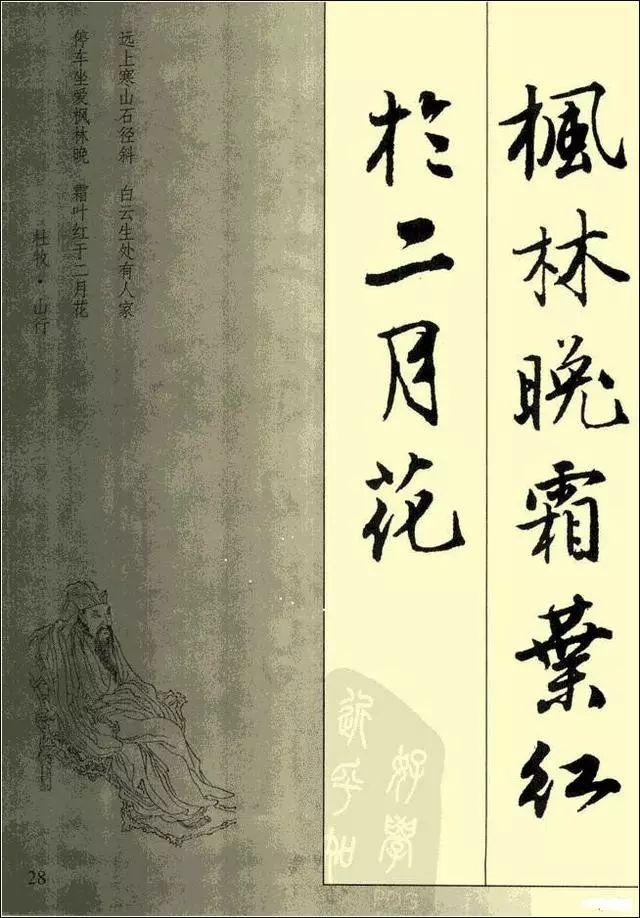 楓林晚霜葉紅
於二月花
好學
近乎知
远上寒山石径斜 白云生处有人家
停车坐爱枫林晚 霜叶红于二月花
杜牧·山行
28